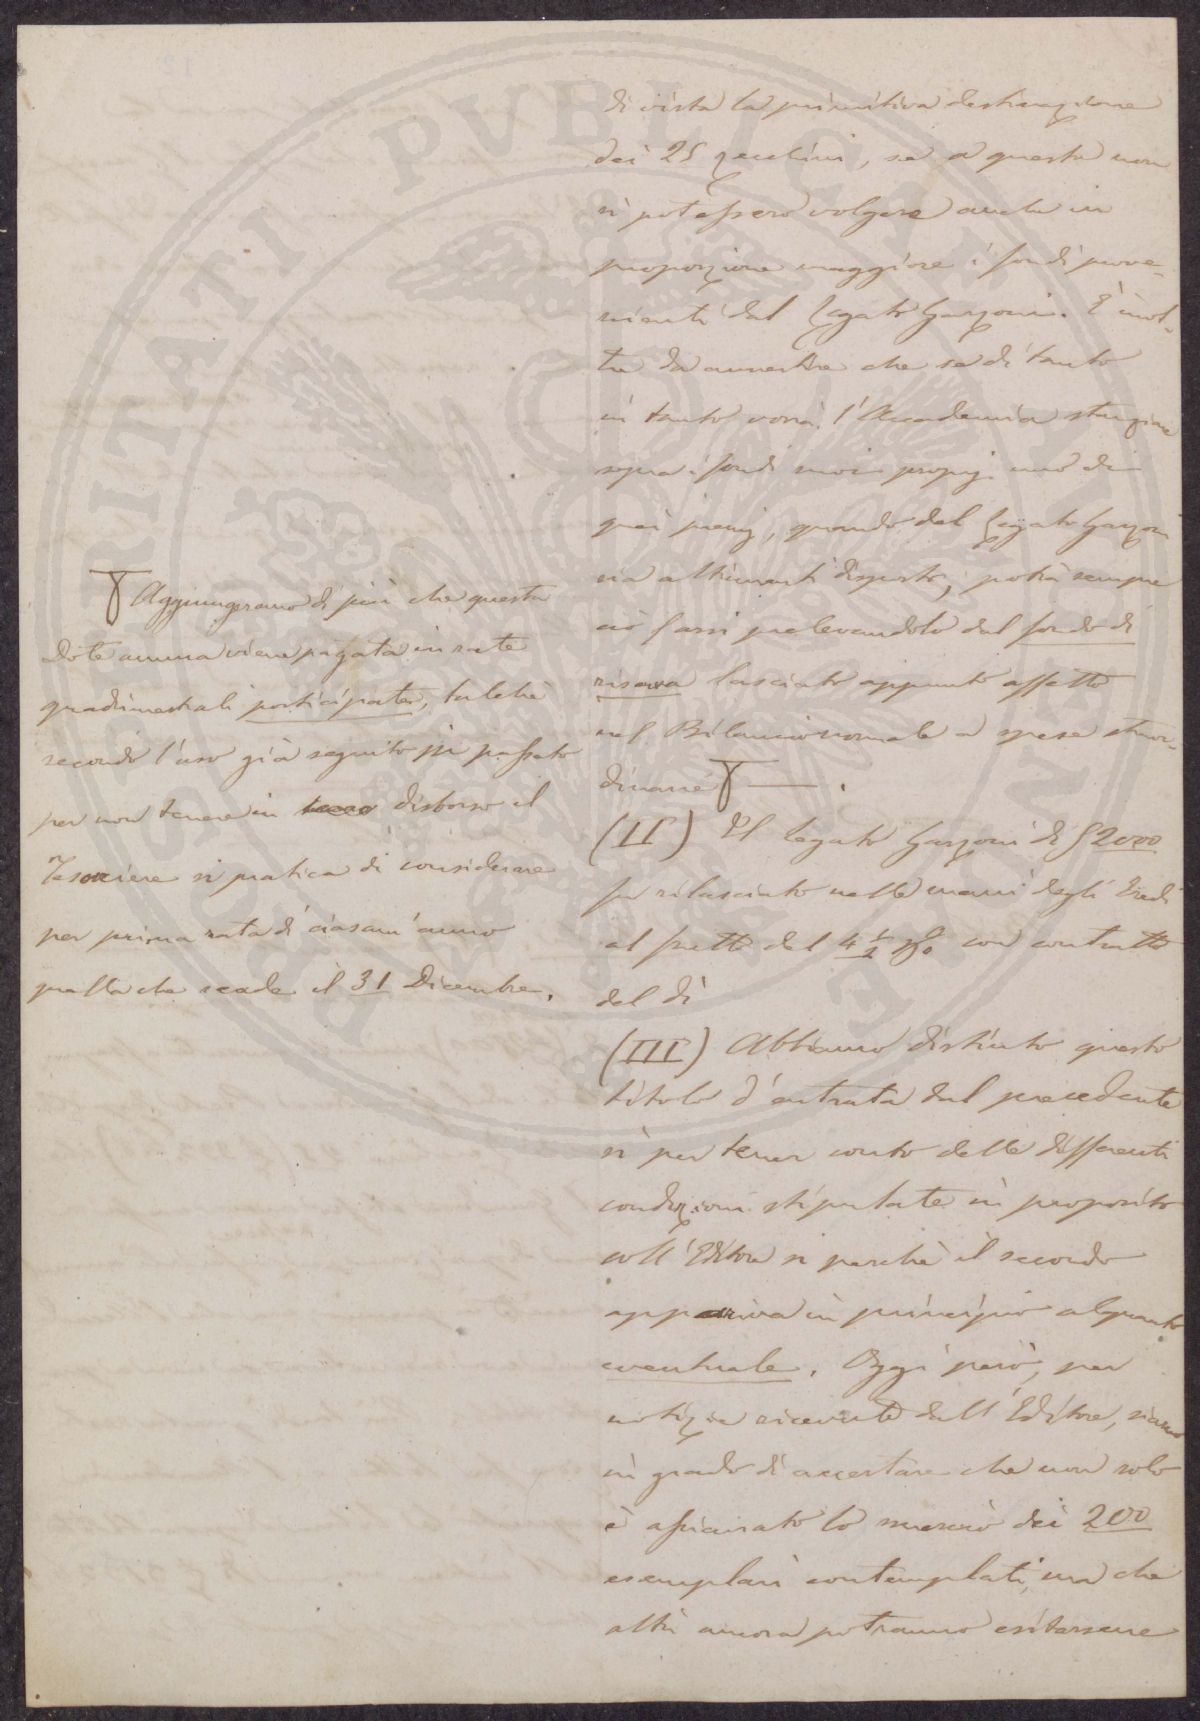 di vista la primitiva destinazione
dei 25 zecchini, se a questa non
si potessero volgere anche in
proporzione maggiore i fondi prove-
nienti dal Legato Garzoni. È inol-
tre da avvertire che se di tanto
in tanto vorrà l'Accademia stanziare
sopra i fondi suoi proprj uno di
quei premj, quando del Legato Garzoni
sia altrimenti disposto, potrà sempre
ciò farsi prelevandolo dal fondo di
riserva lasciato appunto affetto
nel Bilancio normale a spese straor-
dinarie
(II) Il legato Garzoni di £ 2000
fu rilasciato nelle mani degli Eredi
al frutto del 4 1/2 p% con contratto
del dì
(III) Abbiamo distinto questo
titolo d'entrata dal precedente
sì per tener conto delle differenti
condizioni stipulate in proposito
coll'Editore sì perchè il secondo
appariva in principio alquanto
eventuale. Oggi però, per
notizie ricevute dall'Editore, siamo
in grado di accertare che non solo
è assicurato lo smercio dei 200
esemplari contemplati, ma che
altri ancora potranno esitarsene
Aggiungeremo di più che questa
Dote annua viene pagata in rate
quadrimestrali posticipate, talchè
secondo l'uso già seguito pel passato
per non tenere in disborso il
Tesoriere si pratica di considerare
per prima rata di ciascun'anno
quella che scade il 31 Dicembre.
PROSPERITATI PVBLICAE AVGENDAE